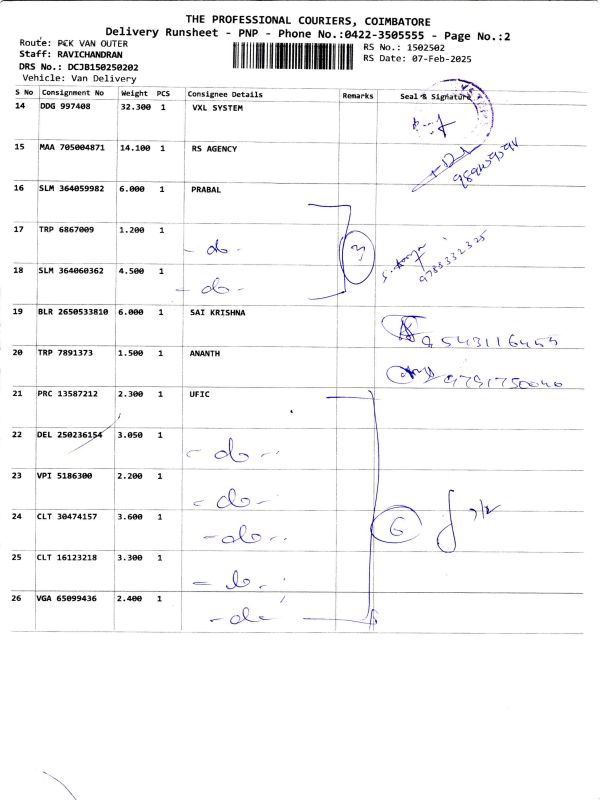 THE PROFESSIONAL COURIERS, COIMBATORE
Delivery Runsheet - PNP - Phone No.:0422-3505555 - Page No.:2
Route: PCK VAN OUTER
RS No.: 1502502
Staff: RAVICHANDRAN
RS Date: 07-Feb-2025
DRS No.: DCJB150250202
Vehicle: Van Delivery
S No Consignment No Weight PCS Consignee Details Remarks Seal & Signature
14 DDG 997408 32.300 1 VXL SYSTEM
15 MAA 705004871 14.100 1 RS AGENCY
16 SLM 364059982 6.000 1 PRABAL
17 TRP 6867009 1.200 1 - do - 3
18 SLM 364060362 4.500 1 - do -
19 BLR 2650533810 6.000 1 SAI KRISHNA 9543116459
20 TRP 7891373 1.500 1 ANANTH 9791750040
21 PRC 13587212 2.300 1 UFIC
22 DEL 250236154 3.050 1 - do -
23 VPI 5186300 2.200 1 - do -
24 CLT 30474157 3.600 1 - do - 6
25 CLT 16123218 3.300 1 - do -
26 VGA 65099436 2.400 1 - do -